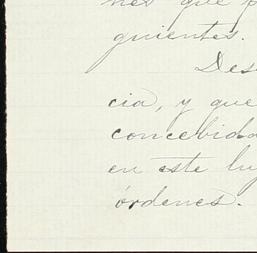 nes que p
guientes.
Des
cia, y que
concebida
en este lu
órdenes.